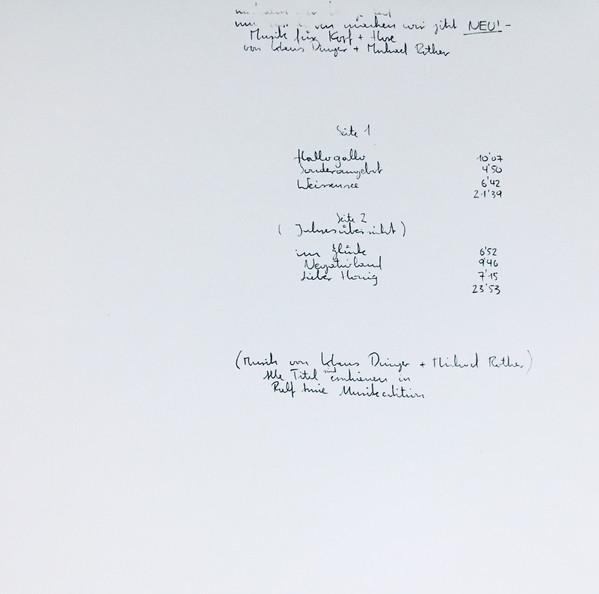 von machen wir jetzt NEU! -
Musik für Kopf + Hose
von Klaus Dinger + Michael Rother
Seite 1
Hallogallo 10'07
Sonderangebot 4'50
Weissensee 6'42
21'39
Seite 2
( Jahresübersicht )
im Glück 6'52
Negativland 9'46
Lieber Honig 7'15
23'53
(Musik von Klaus Dinger + Michael Rother)
Alle Titel erschienen in
Ralf Musikedition